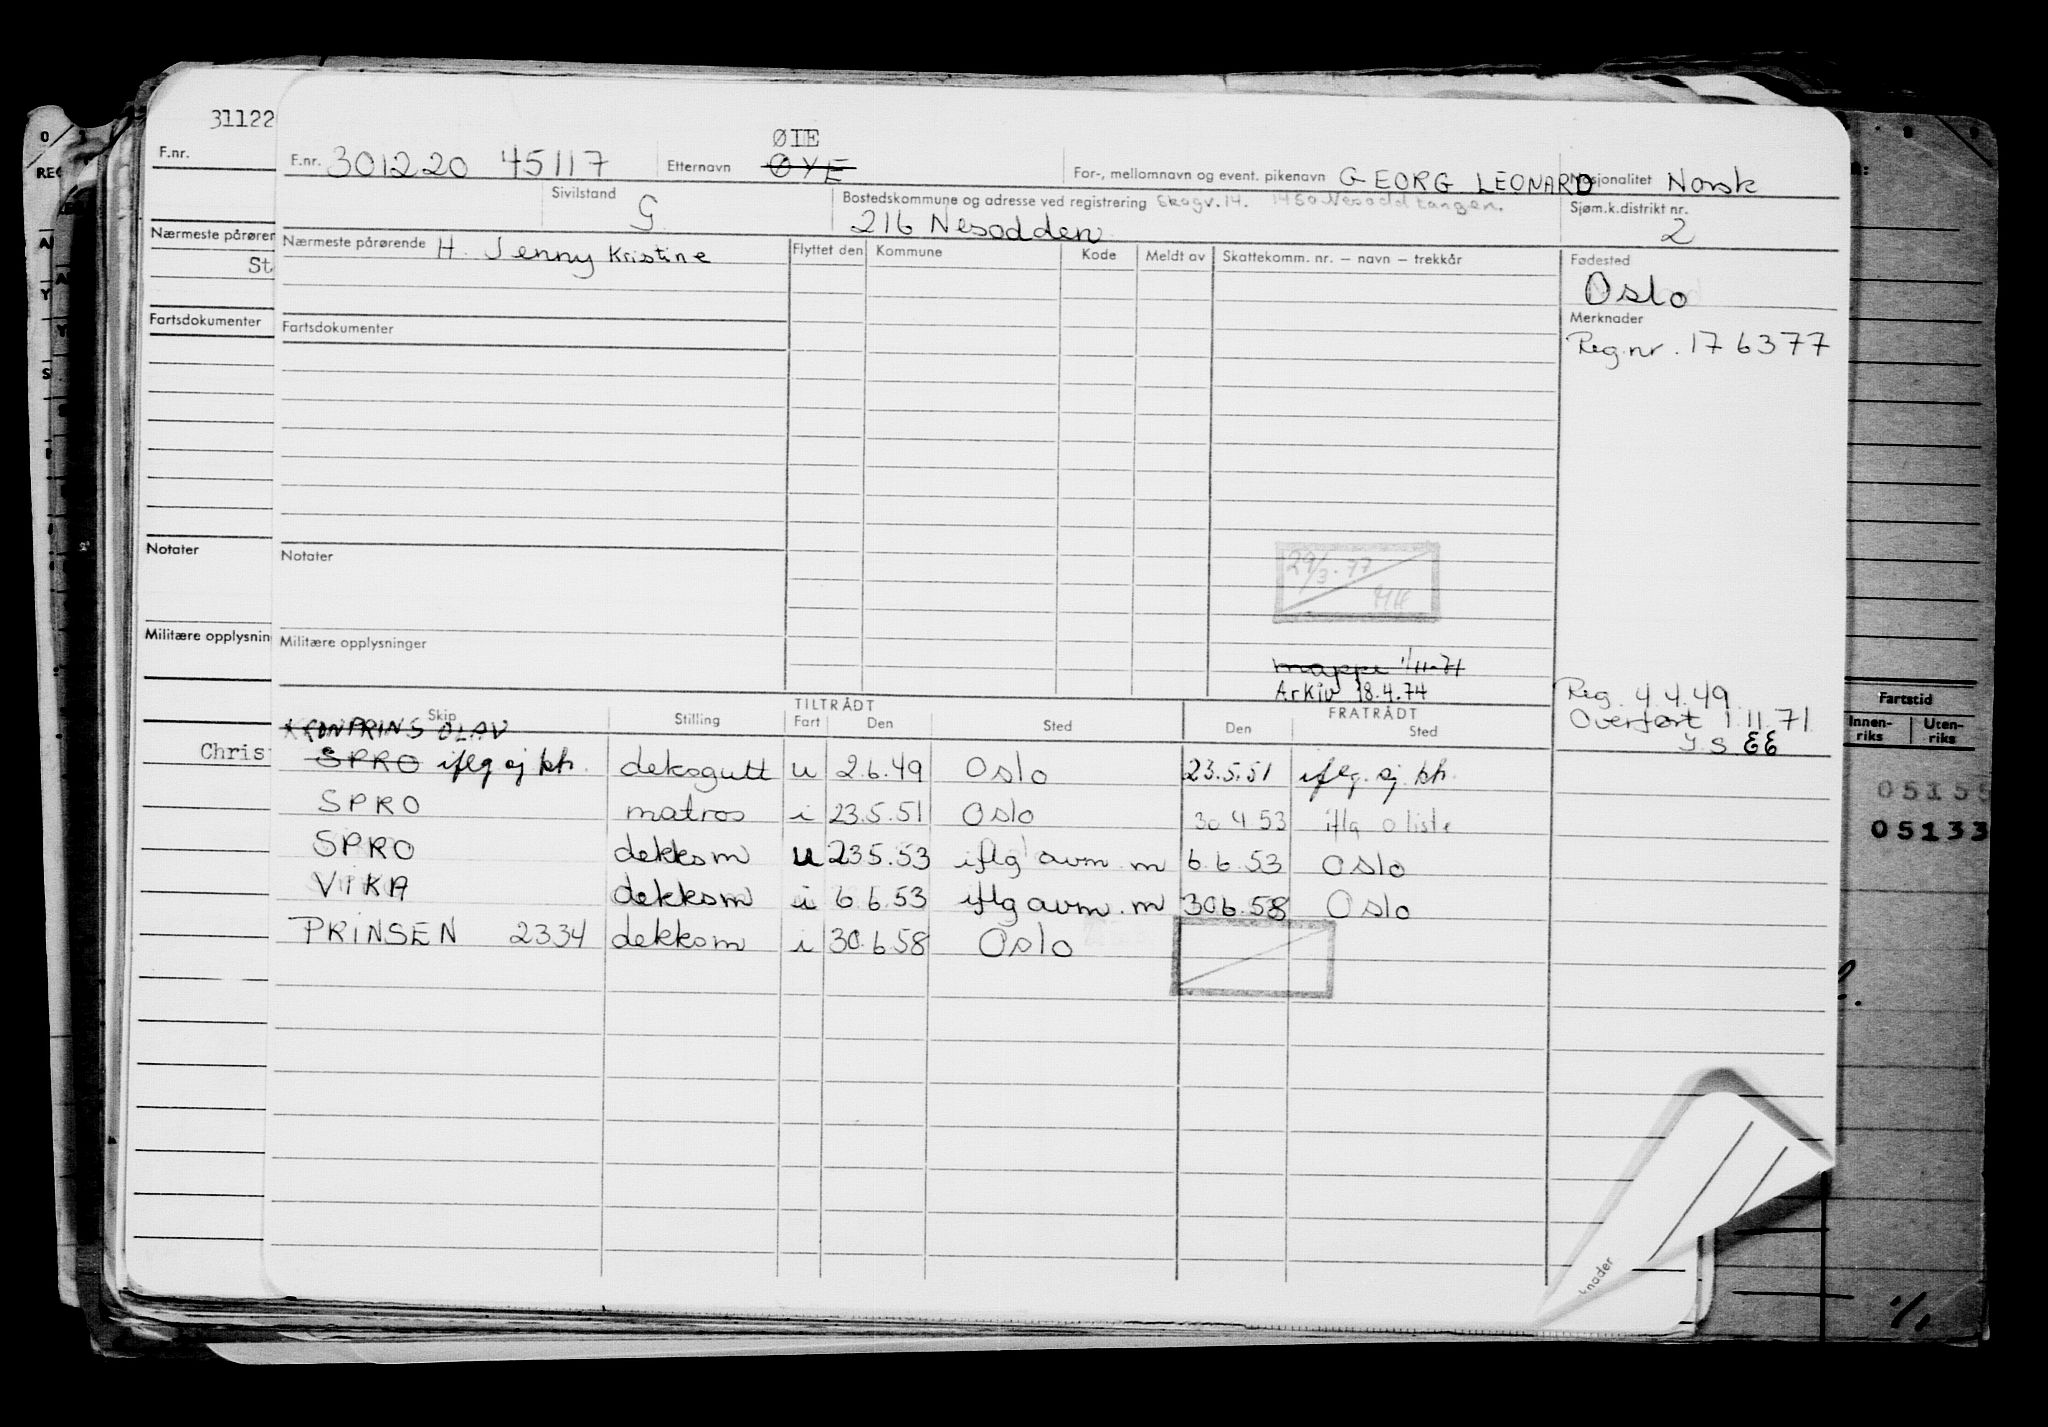 31122
ØIE
F.nr.
F.nr. 301220 45117 Etternavn ØYE For-, mellomnavn og event. pikenavn GEORG LEONARD Nasjonalitet Norsk
Sivilstand G Bostedskommune og adresse ved registrering Skogv. 14. 1450 Nesoddtangen. Sjøm.k.distrikt nr.
216 Nesodden 2
Nærmeste pårøren
Nærmeste pårørende H. Jenny Kristine Flyttet den Kommune Kode Meldt av Skattekomm. nr. – navn – trekkår Fødested
St
Oslo
Fartsdokumenter
Fartsdokumenter
Merknader
Reg.nr. 176377
Notater
Notater
29/3.77
HH
Militære opplysnin
Militære opplysninger
mappe 1/11-71
Arkiv 18.4.74
Reg. 4.4.49
Overført 1.11.71
Skip Stilling TILTRÅDT Fart Den Sted FRATRÅDT Den Sted
KRONPRINS OLAV
Chris
SPRO iflg sj.bh. deksgutt u 2.6.49 Oslo 23.5.51 iflg. sj. bh.
SPRO matros i 23.5.51 Oslo 30 4 53 iflg o liste
SPRO dekksm u 235.53 iflg avm. m 6.6.53 Oslo
VIKA dekksm i 6.6.53 iflg avm. m 306.58 Oslo
PRINSEN 2334 dekksm i 30.6.58 Oslo
Fartstid
Innen-riks Uten-riks
05155
05133
nader
1/1